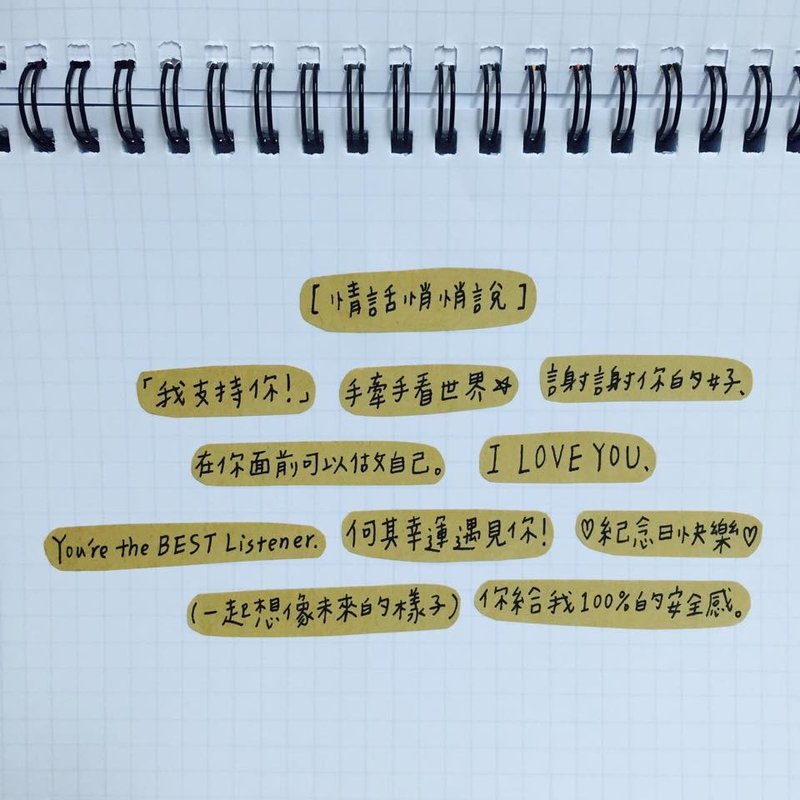 [ 情話悄悄說 ]
「我支持你!」 手牽手看世界☆ 謝謝你的好、
在你面前可以做自己。 I LOVE YOU.
You're the BEST Listener. 何其幸運遇見你! ♡紀念日快樂♡
(一起想像未來的樣子) 你給我100%的安全感。